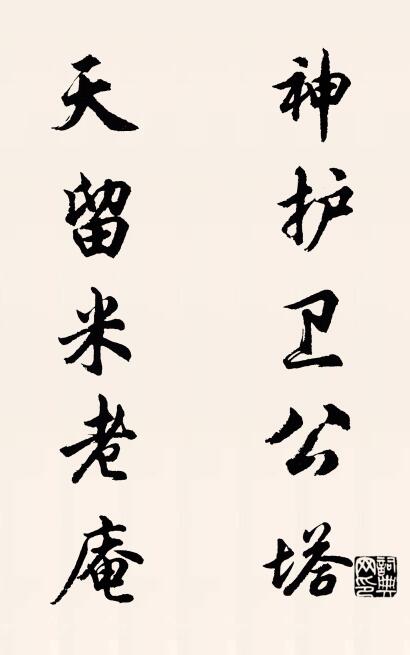 神护卫公塔
天留米老庵
詞典網印